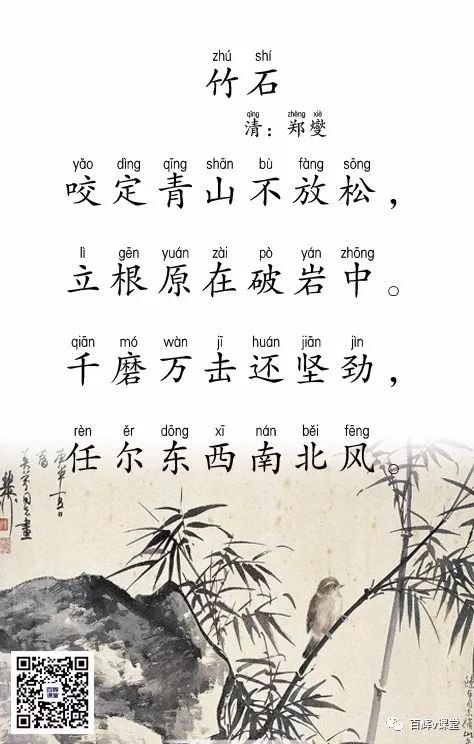 zhú shí
竹石
qīng zhèng xiè
清：郑燮
yǎo dìng qīng shān bù fàng sōng
咬定青山不放松，
lì gēn yuán zài pò yán zhōng
立根原在破岩中。
qiān mó wàn jī huán jiān jìn
千磨万击还坚劲，
rèn ěr dōng xī nán běi fēng
任尔东西南北风。
百辉v课堂